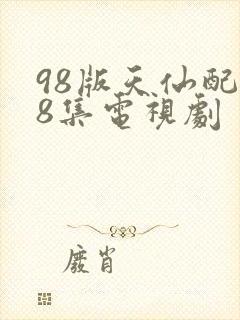 98版天仙配
8集電視劇
廢肖